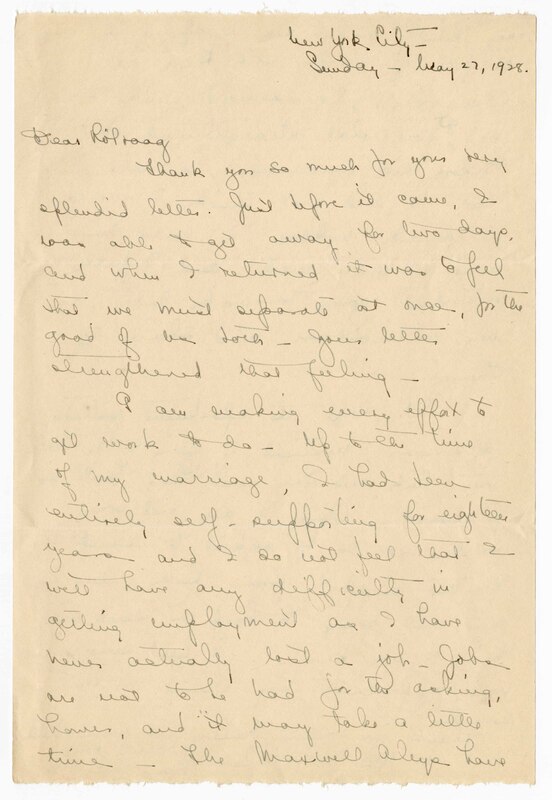 New York City —
Sunday — May 27, 1928.
Dear Rölvaag
Thank you so much for your very
splendid letter. Just before it came, I
was able to get away for two days,
and when I returned it was to feel
that we must separate at once, for the
good of us both — Your letter
strengthened that feeling —
I am making every effort to
get work to do — Up to the time
of my marriage, I had been
entirely self-supporting for eighteen
years and I do not feel that I
will have any difficulty in
getting employment as I have
never actually lost a job — Jobs
are not to be had for the asking,
however, and it may take a little
time — The Maxwell Aleys have